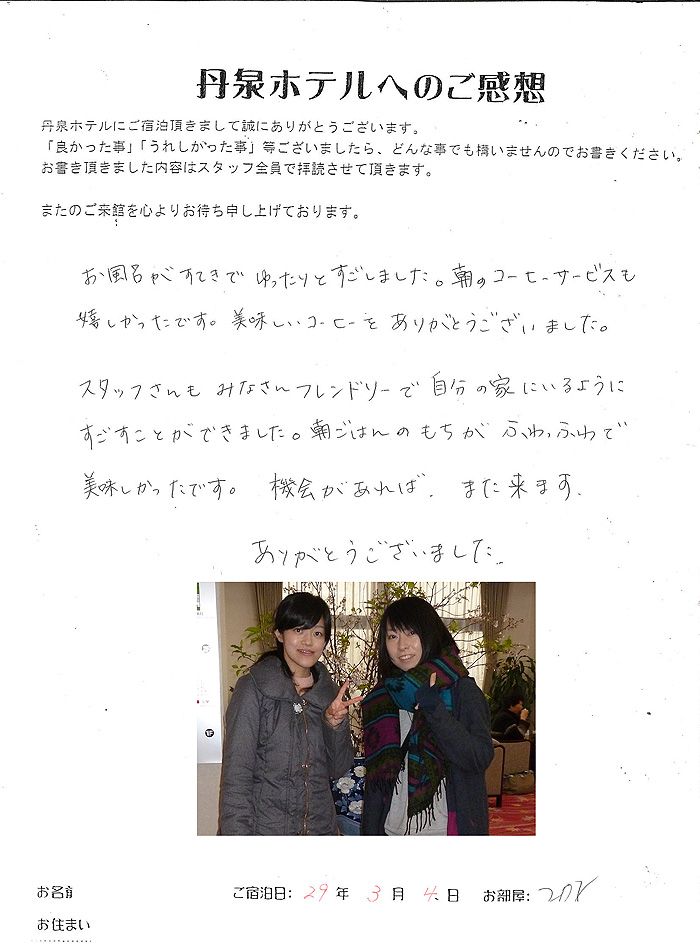 丹泉ホテルへのご感想
丹泉ホテルにご宿泊頂きまして誠にありがとうございます。
「良かった事」「うれしかった事」等ございましたら、どんな事でも構いませんのでお書きください。
お書き頂きました内容はスタッフ全員で拝読させて頂きます。
またのご来館を心よりお待ち申し上げております。
お風呂がすてきで ゆったりとすごしました。朝のコーヒーサービスも
嬉しかったです。美味しいコーヒーをありがとうございました。
スタッフさんも みなさんフレンドリーで 自分の家にいるように
すごすことができました。朝ごはんのもちが ふわっふわで
美味しかったです。 機会があれば、また来ます.
ありがとうございました.
お名前 ご宿泊日: 29 年 3 月 4 日 お部屋:
お住まい